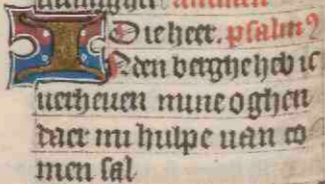 Die heer. psalm
I nden berghe heb ic
uerheuen mine oghen
daer mi hulpe uan co
men sal